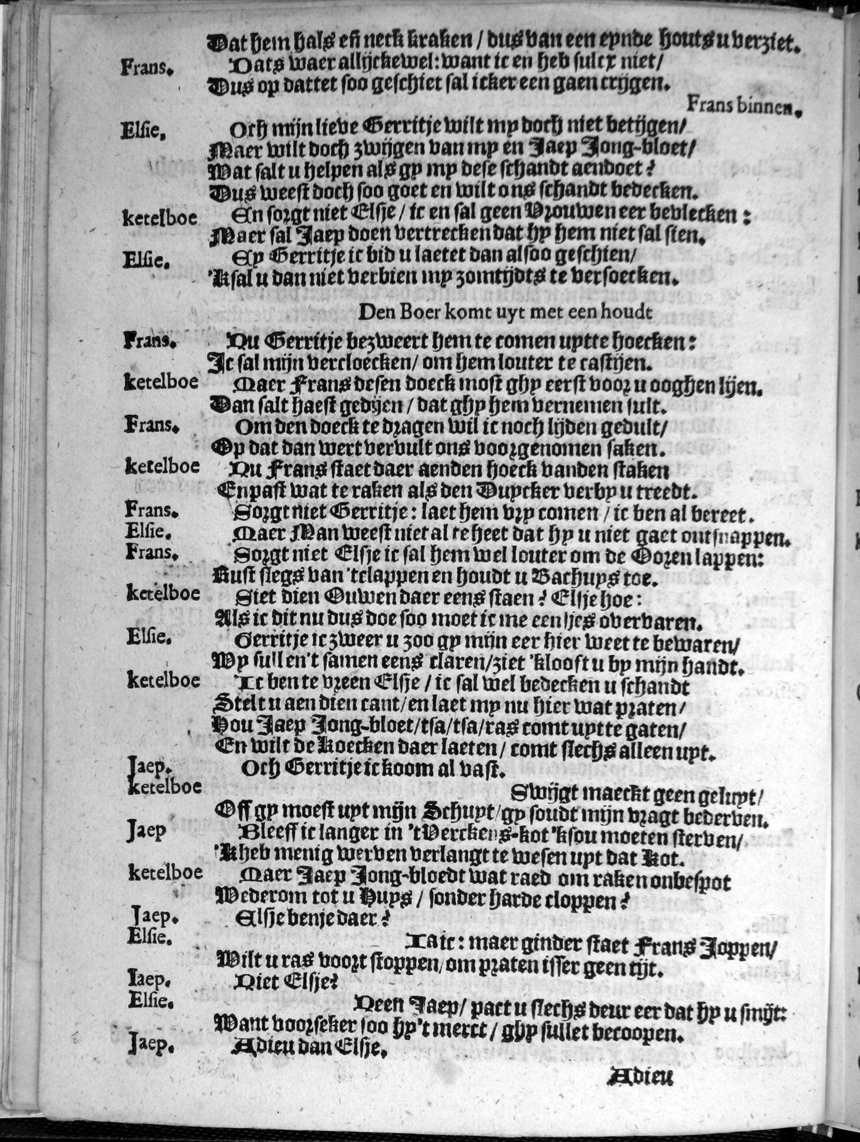 Dat hem hals eñ neck kraken / dus van een eynde houts u verziet.
Frans. Dats waer allijckewel: want ic en heb sulcx niet/
Dus op dattet soo geschiet sal icker een gaen crijgen.
Frans binnen.
Elsie. Och mijn lieve Gerritje wilt my doch niet betijgen/
Maer wilt doch zwijgen van my en Jaep Jong-bloet/
Wat salt u helpen als gy my dese schandt aendoet?
Dus weest doch soo goet en wilt ons schandt bedecken.
ketelboe En sorgt niet Elsje / ic en sal geen Vrouwen eer bevlecken:
Maer sal Jaep doen vertrecken dat hy hem niet sal sien.
Elsie. Ey Gerritje ic bid u laetet dan alsoo geschien/
'Ksal u dan niet verbien my zomtijdts te versoecken.
Den Boer komt uyt met een houdt
Frans. Nu Gerritje bezweert hem te comen uytte hoecken:
Ic sal mijn vercloecken / om hem louter te castijen.
ketelboe Maer Frans desen doeck most ghy eerst voor u ooghen lijen.
Dan salt haest gedijen / dat ghy hem vernemen sult.
Frans. Om den doeck te dragen wil ic noch lijden gedult/
Op dat dan wert vervult ons voorgenomen saken.
ketelboe Nu Frans staet daer aenden hoeck vanden staken
En past wat te raken als den Duycker verby u treedt.
Frans. Sorgt niet Gerritje: laet hem vry comen / ic ben al bereet.
Elsie. Maer Man weest niet al te heet dat hy u niet gaet ontsnappen.
Frans. Sorgt niet Elsje ic sal hem wel louter om de Ooren lappen:
Rust slegs van 'tclappen en houdt u Bachuys toe.
ketelboe Siet dien Ouwen daer eens staen? Elsje hoe:
Als ic dit nu dus doe soo moet ic me eensjes overvaren.
Elsie. Gerritje ic zweer u zoo gy mijn eer hier weet te bewaren/
Wy sullen't samen eens claren/ziet 'kloost u by mijn handt.
ketelboe Ic ben te vreen Elsje / ic sal wel bedecken u schandt
Stelt u aen dien cant/en laet my nu hier wat praten/
Hou Jaep Jong-bloet/tsa/tsa/ras comt uytte gaten/
En wilt de Koecken daer laeten / comt slechs alleen uyt.
Jaep. Och Gerritje ick oom al vast.
ketelboe Swijgt maeckt geen geluyt/
Off gy moest uyt mijn Schuyt/gy soudt mijn vragt bederven.
Jaep Bleeff ic langer in 'tVerckens-kot 'ksou moeten sterven/
'Kheb menig werven verlangt te wesen uyt dat Kot.
ketelboe Maer Jaep Jong-bloedt wat raed om raken onbespot
Wederom tot u Huys / sonder harde cloppen?
Jaep. Elsje benje daer?
Elsie. Ia ic: maer ginder staet Frans Joppen/
Wilt u ras voort stoppen/om praten isser geen tijt.
Iaep. Niet Elsje?
Elsie. Neen Jaep/ pact u slechs deur eer dat hy u smijt:
Want voorseker soo hy't merct / ghy sullet becoopen.
Jaep. Adieu dan Elsje.
Adieu